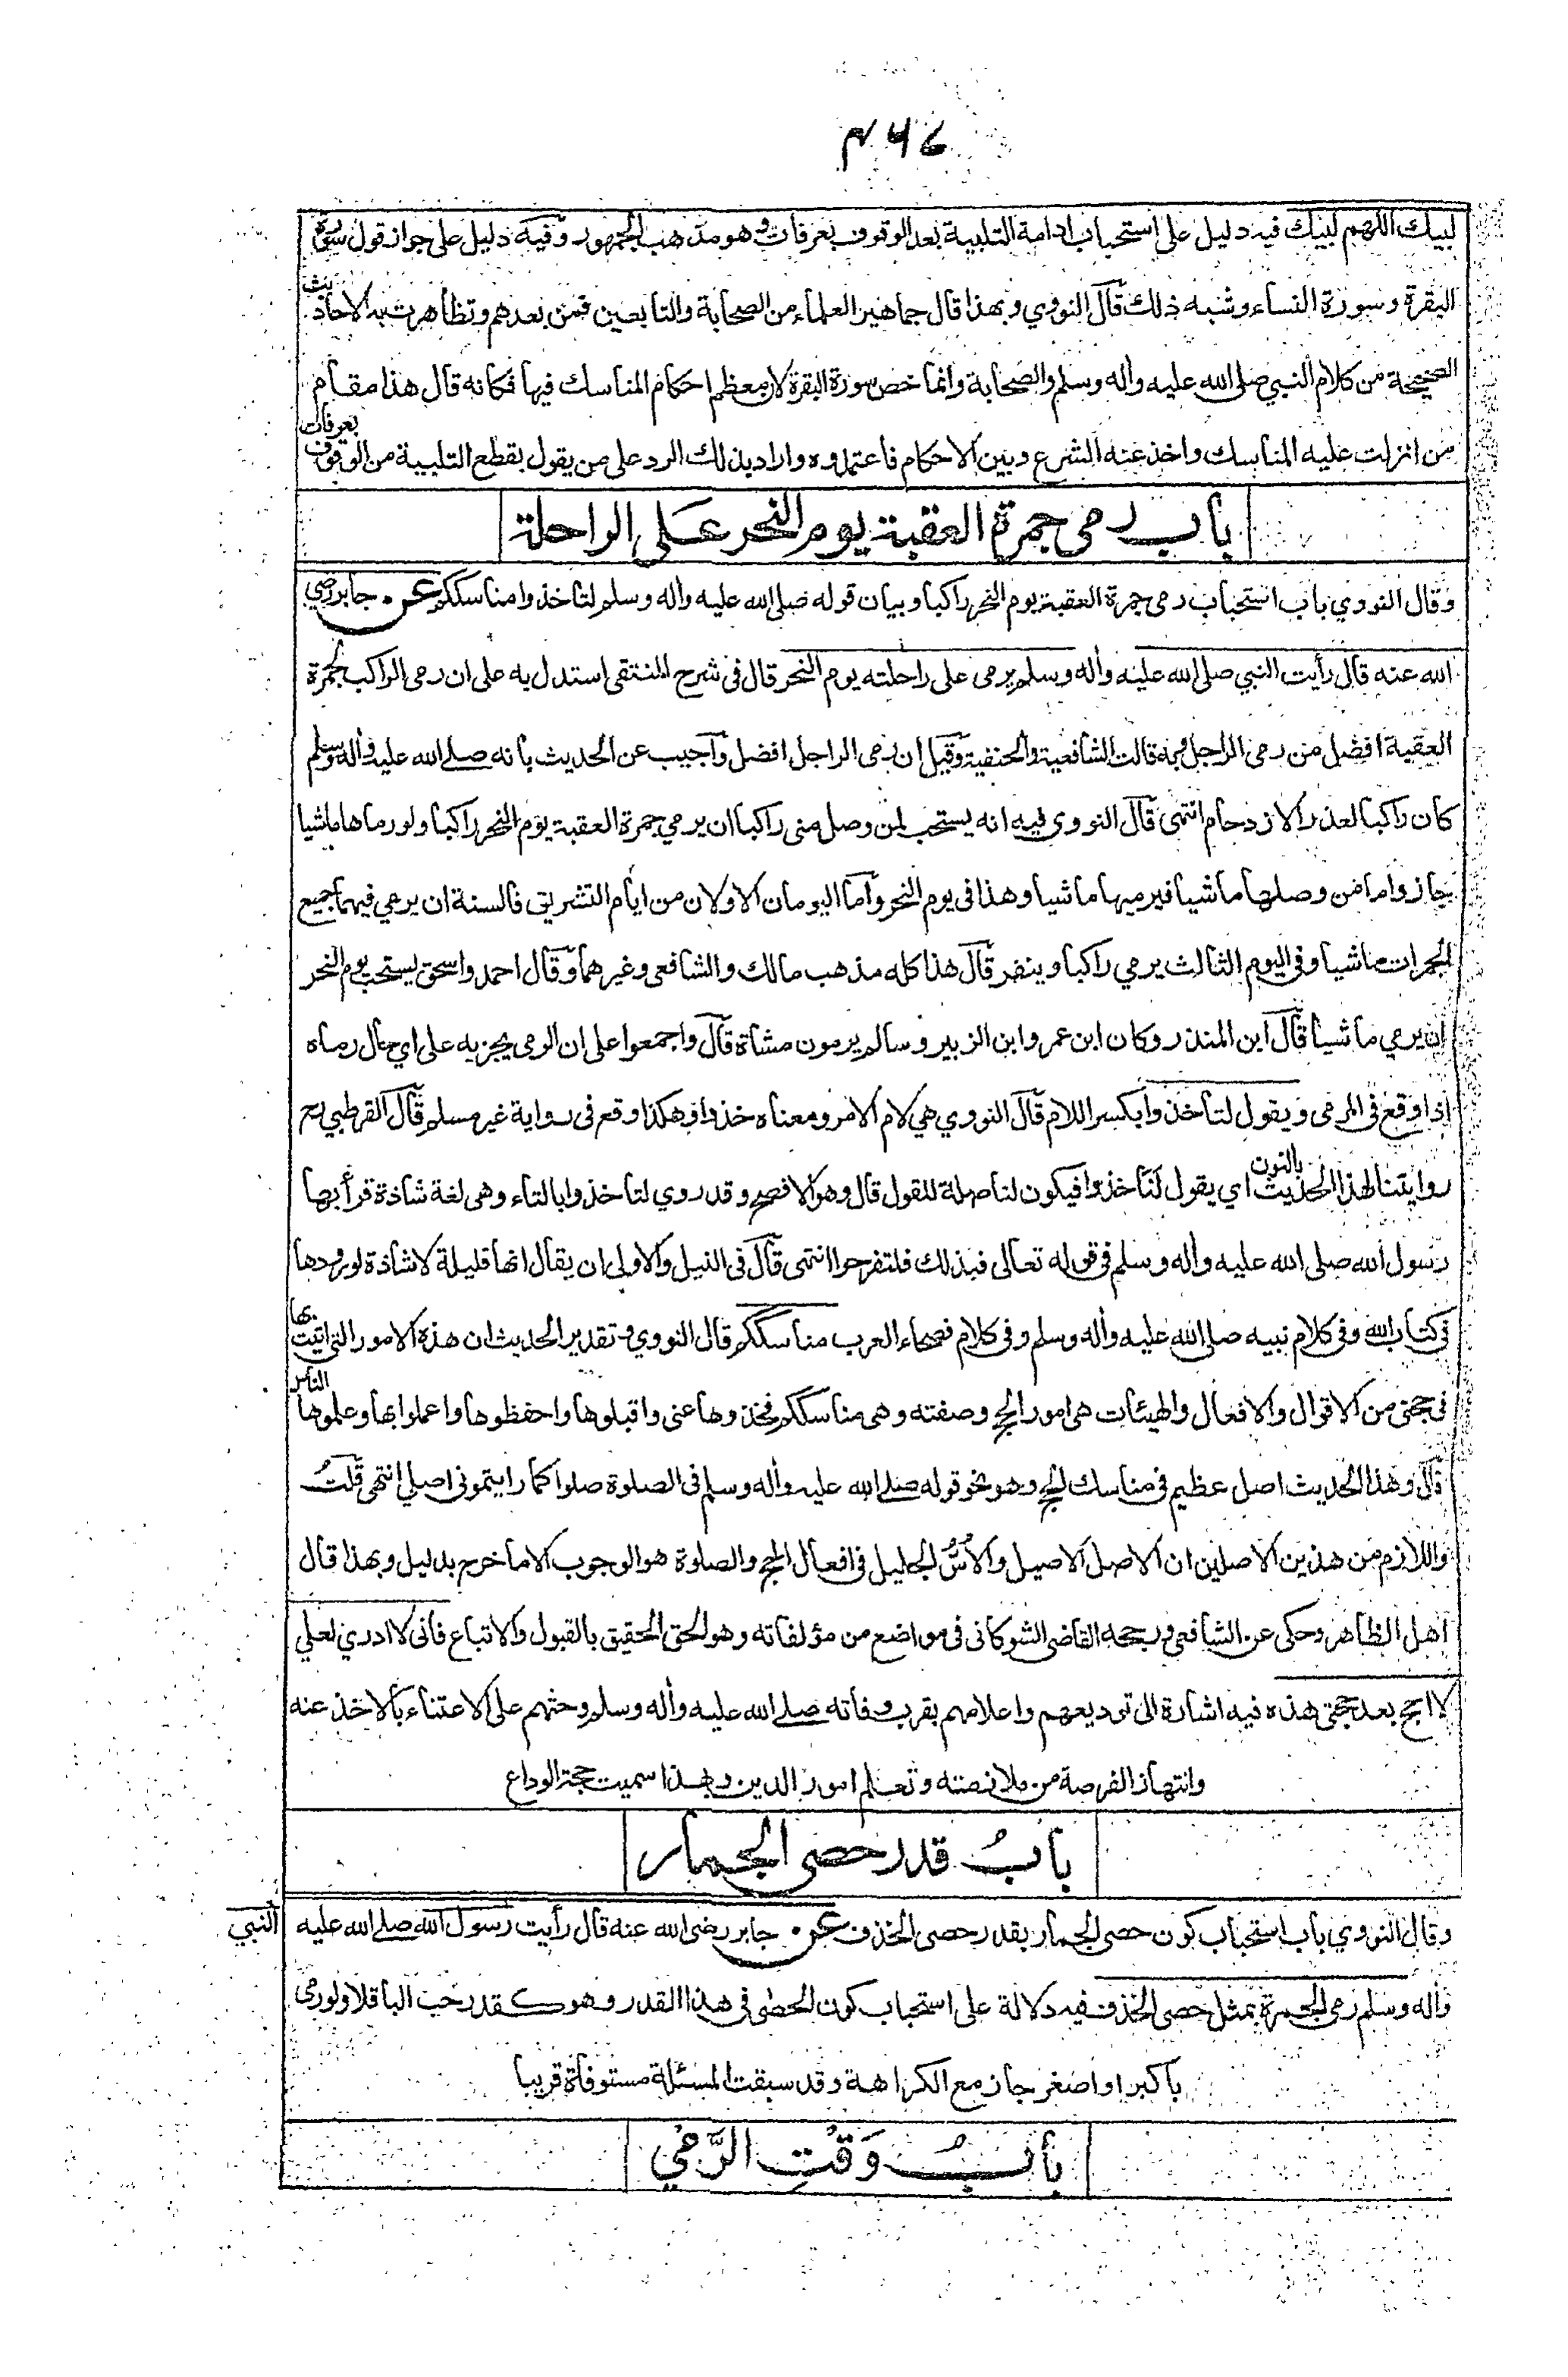 ٤٦٤
لبيك اللهم لبيك فيه دليل على استحباب ادامة التلبية بعد الوقوف بعرفات وهو مذهب الجمهور وفيه دليل على جواز قول سورة
البقرة وسورة النساء وشبه ذلك قال النووي وبهذا قال جماهير العلماء من الصحابة والتابعين فمن بعدهم وتظاهرت به الاحاديث
الصحيحة من كلام النبي صلى الله عليه وأله وسلم والصحابة وانما خص سورة البقرة لان معظم احكام المناسك فيها فكانه قال هذا مقام
من انزلت عليه المناسك واخذ عنه الشرع وبين الاحكام فاعتمدوه واراد بذلك الرد على من يقول بقطع التلبية من الوقوف بعرفات
باب رمى جمرة العقبة يوم النحر على الراحلة
وقال النووي باب استحباب رمى جمرة العقبة يوم النحر راكبا وبيان قوله صلى الله عليه وأله وسلم لتأخذوا مناسككم عن جابر رضي
الله عنه قال رأيت النبي صلى الله عليه وأله وسلم يرمى على راحلته يوم النحر قال فى شرح المنتقى استدل به على ان رمى الراكب لجمرة
العقبة افضل من رمى الراجل وبه قالت الشافعية والحنفية وقيل ان رمى الراجل افضل وأجيب عن الحديث بأنه صلى الله عليه وأله وسلم
كان راكبا لعذر الازدحام انتهى قال النووي فيه انه يستحب لمن وصل منى راكبا ان يرمي جمرة العقبة يوم النحر راكبا ولو رماها ماشيا
جاز واما من وصلها ماشيا فيرميها ماشيا وهذا فى يوم النحر وأما اليومان الاولان من ايام التشريق فالسنة ان يرمي فيهما جميع
الجمرات ماشيا وفى اليوم الثالث يرمي راكبا وينفر قال هذا كله مذهب مالك والشافعى وغيرهما وقال احمد واسحق يستحب يوم النحر
ان يرمي ماشيا قال ابن المنذر وكان ابن عمر وابن الزبير وسالم يرمون مشاة قال واجمعوا على ان الرمى يجزيه على اي حال رماه
اذا وقع فى المرمى ويقول لتأخذوا بكسر اللام قال النووي هي لام الامر ومعناه خذوا وهكذا وقع فى رواية غير مسلم قال القرطبي
روايتنا لهذا الحديث بالنون اي يقول لنا خذوا فيكون لنا صلة للقول قال وهو الافصح وقد روي لتأخذوا بالتاء وهى لغة شاذة قرأ بها
رسول الله صلى الله عليه وأله وسلم فى قوله تعالى فبذلك فلتفرحوا انتهى قال فى النيل والاولى ان يقال انها قليلة لا شاذة لورودها
فى كتاب الله وفى كلام نبيه صلى الله عليه وأله وسلم وفى كلام فصحاء العرب مناسككم قال النووي وتقدير الحديث ان هذه الامور التي اتيت بها
فى حجتى من الاقوال والافعال والهيئات هى امور الحج وصفته وهى مناسككم فخذوها عنى واقبلوها واحفظوها واعملوا بها وعلموها الناس
قال وهذا الحديث اصل عظيم فى مناسك الحج وهو نحو قوله صلى الله عليه وأله وسلم فى الصلوة صلوا كما رايتمونى اصلي انتهى قلت
واللازم من هذين الاصلين ان الاصل الاصيل والأس الجليل فى افعال الحج والصلوة هو الوجوب الا ما خرج بدليل وبهذا قال
اهل الظاهر وحكى عن الشافعى ورجحه القاضى الشوكانى فى مواضع من مؤلفاته وهو الحق الحقيق بالقبول والاتباع فانى لا ادري لعلي
لا احج بعد حجتى هذه فيه اشارة الى توديعهم واعلامهم بقرب وفاته صلى الله عليه وأله وسلم وحثهم على الاعتناء بالاخذ عنه
وانتهاز الفرصة من ملازمته وتعلم امور الدين وبهذا سميت حجة الوداع
باب قدر حصى الجمار
وقال النووي باب استحباب كون حصى الجمار بقدر حصى الخذف عن جابر رضى الله عنه قال رأيت رسول الله صلى الله عليه النبي
وأله وسلم رمى الجمرة بمثل حصى الخذف فيه دلالة على استحباب كون الحصى فى هذا القدر وهو كقدر حب الباقلا ولو رمى
باكبر او اصغر جاز مع الكراهة وقد سبقت المسئلة مستوفاة قريبا
باب وَقْتِ الرَّمْيِ